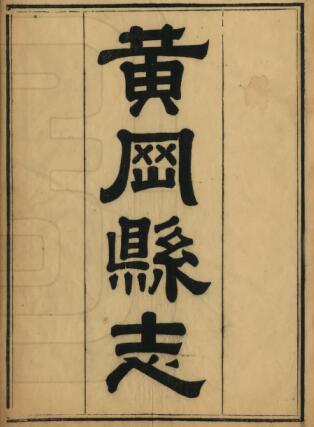 黄岡縣志